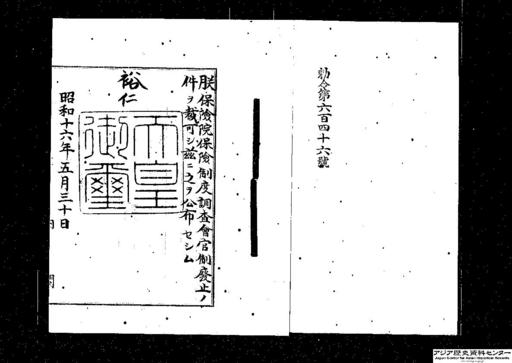 勅令第六百四十六號
朕保險院保險制度調査會官制廢止ノ
件ヲ裁可シ茲ニ之ヲ公布セシム
裕仁
天皇
御璽
昭和十六年五月三十日
アジア歴史資料センター
Japan Center for Asian Historical Records